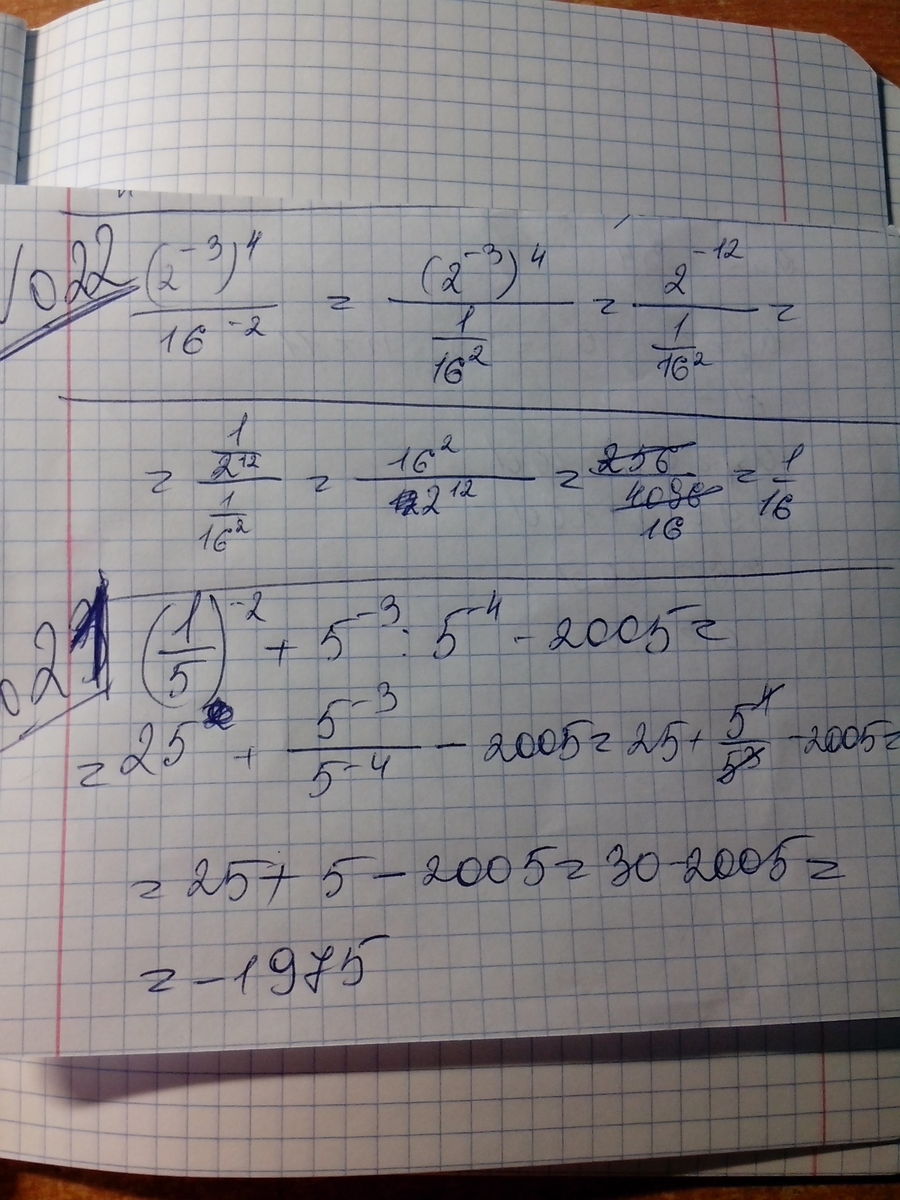 1022 (2^-3)^4 / 16^-2 = (2^-3)^4 / (1/16^2) = 2^-12 / (1/16^2) =
= (1/2^12) / (1/16^2) = 16^2 / 2^12 = 256/4096 16 = 1/16
021 (1/5)^-2 + 5^-3 : 5^-4 - 2005 =
= 25 + 5^-3/5^-4 - 2005 = 25 + 5^4/5^3 - 2005 =
= 25 + 5 - 2005 = 30 - 2005 =
= -1975